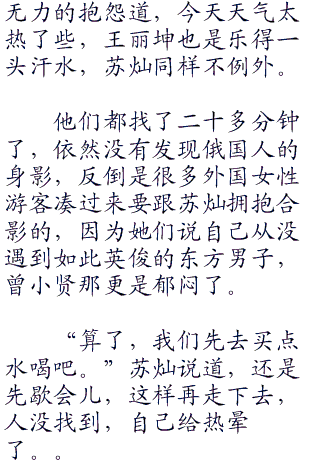 无力的抱怨道，今天天气太
热了些，王丽坤也是乐得一
头汗水，苏灿同样不例外。
他们都找了二十多分钟
了，依然没有发现俄国人的
身影，反倒是很多外国女性
游客凑过来要跟苏灿拥抱合
影的，因为她们说自己从没
遇到如此英俊的东方男子，
曾小贤那更是郁闷了。
“算了，我们先去买点
水喝吧。”苏灿说道，还是
先歇会儿，这样再走下去，
人没找到，自己给热晕
了。。